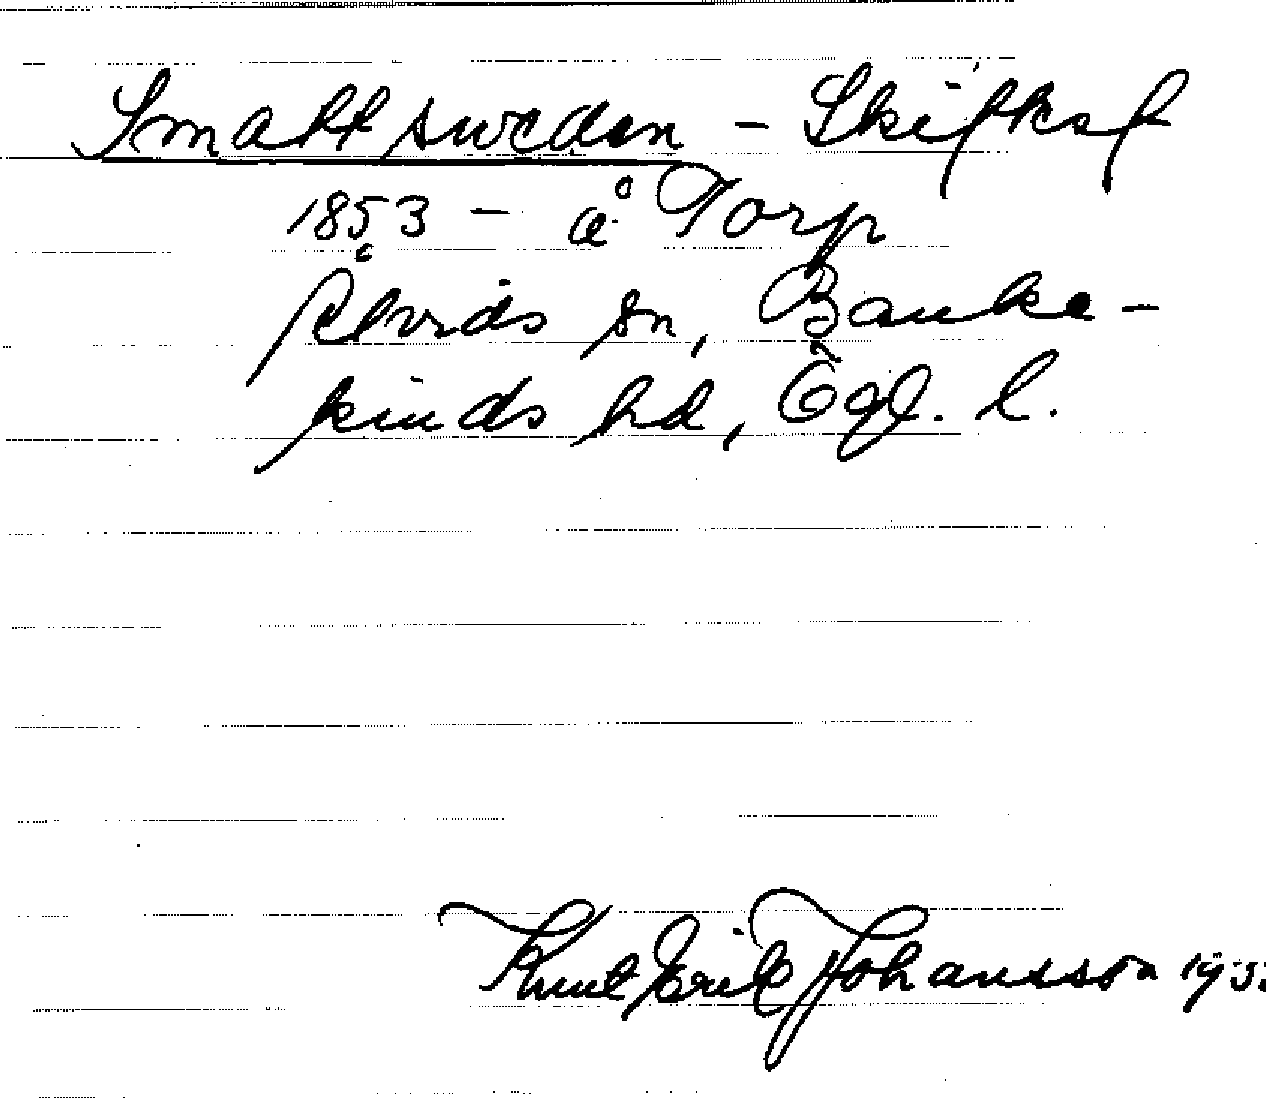 Smattsweden –
1853 – å Torp
Åtvids sn, Banke-
kinds hd, Ögl. l.
Knut Erik Johansson